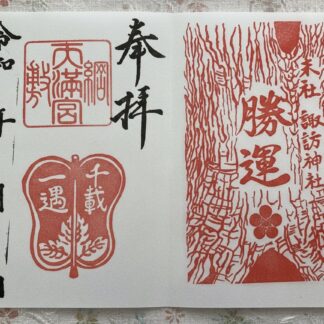 奉拝
綱敷
天満宮
千載
一遇
令和 年 月 日
末社 諏訪神社
勝運